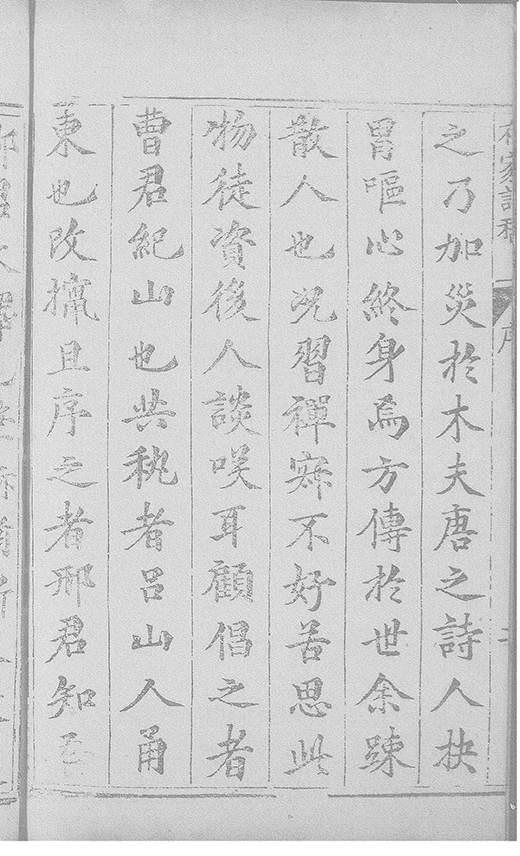 存家詩稿 序
之乃加災於木夫唐之詩人抉
胃嘔心終身焉方傳於世余踈
散人也况習禪寂不好苦思此
物徒資後人談咲耳顧倡之者
曹君紀山也共執者吕山人甬
東也攷摘且序之者邢君知吾